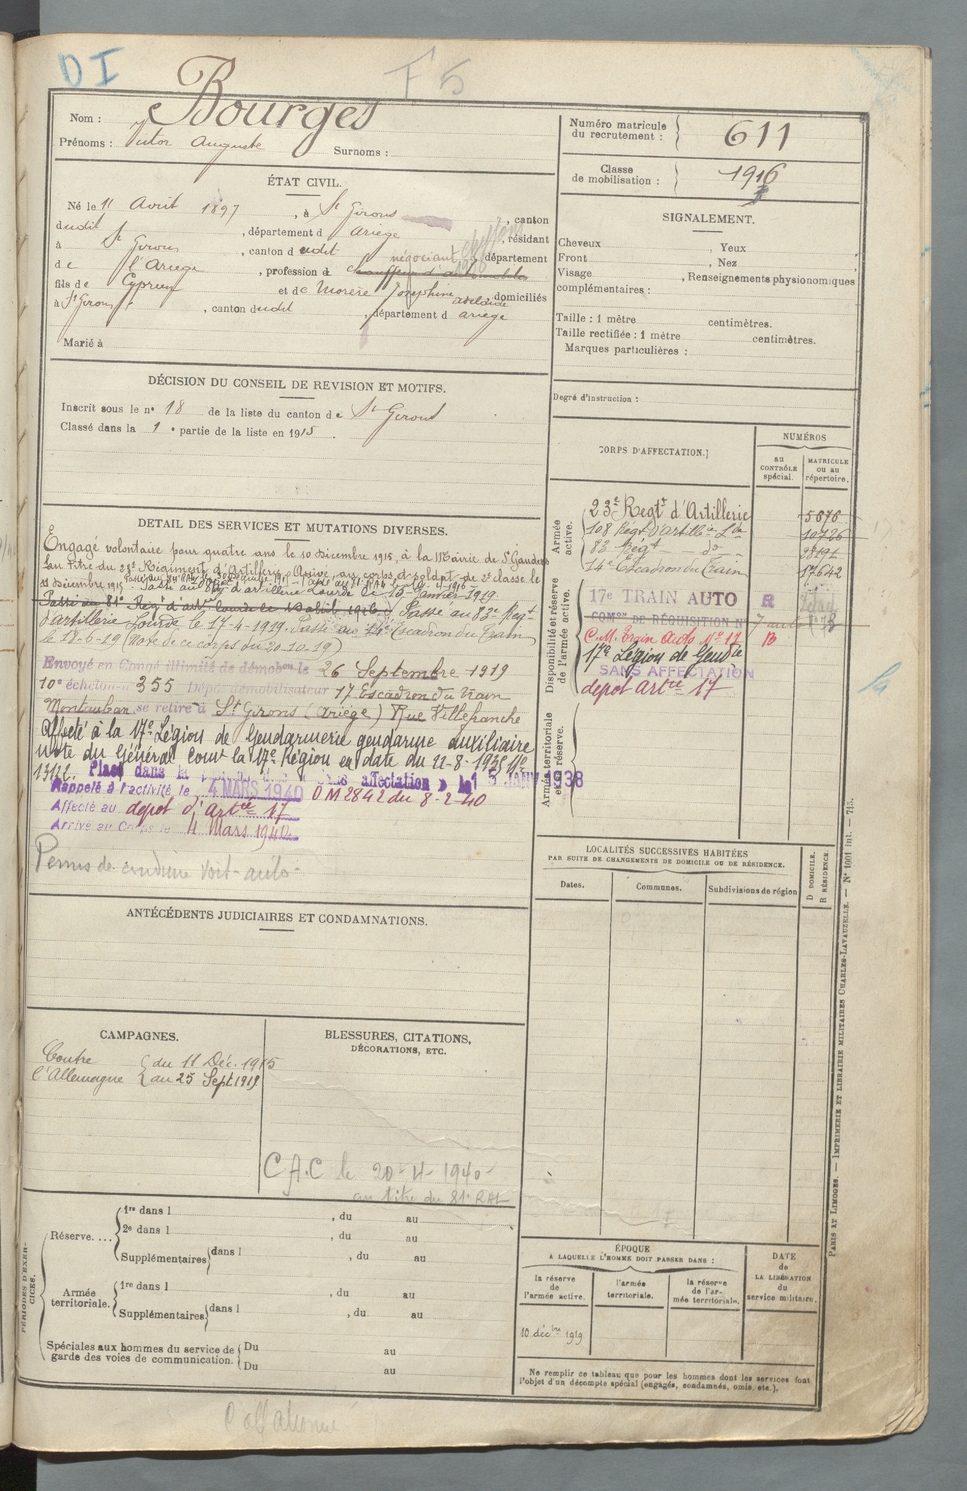 DI
F5
Nom : Bourges
Prénoms : Victor Auguste Surnoms :
Numéro matricule du recrutement : 611
Classe de mobilisation : 1916
ÉTAT CIVIL.
Né le 11 Avril 1897, à St Girons, canton
dudit, département d Ariège, résidant
à St Girons, canton d dudit, département
négociant
d e l'Ariège, profession d chauffeur d'automobiles
fils de Cyprien et de Morère Joséphine Adélaïde domiciliés
à St Girons, canton dudit, département d Ariège
Marié à
SIGNALEMENT.
Cheveux , Yeux
Front , Nez
Visage , Renseignements physionomiques
complémentaires :
Taille : 1 mètre centimètres.
Taille rectifiée : 1 mètre centimètres.
Marques particulières :
Degré d'instruction :
DÉCISION DU CONSEIL DE REVISION ET MOTIFS.
Inscrit sous le n° 18 de la liste du canton de St Girons
Classé dans la 1e partie de la liste en 1915.
DETAIL DES SERVICES ET MUTATIONS DIVERSES.
Engagé volontaire pour quatre ans le 10 Décembre 1915, à la Mairie de St Gaudens
au titre du 23e Régiment d'Artillerie. Arrivé au corps et soldat de 2e classe le
11 Décembre 1915. Passé au d'artillerie Lourde le 15 Janvier 1919.
Passé au 81e Reg't d'art. lourde le Passé au 82e Reg't
d'artillerie Lourde le 17-4-1919. Passé au 14e Escadron du Train
le 18-6-19 (Note de ce corps du 20.10.19)
Envoyé en Congé illimité de démobon le 26 Septembre 1919
10e échelon n° 355 Dépôt démobilisateur 17 Escadron du Train
Montauban se retire à St Girons (Ariège) Rue Villefranche
Affecté à la 17e Légion de Gendarmerie gendarme auxiliaire
note du Général Comt la 17e Région en date du
13122. Placé dans la affectation » le 15 JANV 1938
Rappelé à l'activité le 4 MARS 1940 OM 2842 du 8-2-40
Affecté au dépôt d'artie 17
Arrivé au Corps le 4 Mars 1940
Permis de conduire Voit-auto-
CORPS D'AFFECTATION.
NUMÉROS
AU CONTRÔLE spécial.
MATRICULE OU AU répertoire.
Armée active.
23e Regt d'Artillerie 5676
108 Regt d'Artillerie Lde 10726
82 Regt do
14e Escadron du Train 17642
Disponibilité et réserve de l'armée active.
17e TRAIN AUTO R
COMon DE RÉQUISITION N°
C.M. Train Auto N° 17 B
17e Légion de Gendie
SANS AFFECTATION
dépôt artie 17
Armée territoriale et sa réserve.
LOCALITÉS SUCCESSIVES HABITÉES
PAR SUITE DE CHANGEMENTS DE DOMICILE OU DE RÉSIDENCE.
Dates. Communes. Subdivisions de région
D DOMICILE.
R RÉSIDENCE.
ANTÉCÉDENTS JUDICIAIRES ET CONDAMNATIONS.
CAMPAGNES.
Contre du 11 Déc. 1915
l'Allemagne au 25 Sept 1919
BLESSURES, CITATIONS,
DÉCORATIONS, ETC.
CAC le 20-4-1940
au titre du 81e RAL
PÉRIODES D'EXERCICES.
Réserve.... 1re dans l , du au
2e dans l , du au
Supplémentaires dans l , du au
Armée territoriale. 1re dans l , du au
Supplémentaires dans l , du au
Spéciales aux hommes du service de Du au
garde des voies de communication. Du au
ÉPOQUE
A LAQUELLE L'HOMME DOIT PASSER DANS :
la réserve de l'armée active.
l'armée territoriale.
la réserve de l'armée territoriale.
DATE de LA LIBÉRATION du service militaire.
10 décbre 1919
Ne remplir ce tableau que pour les hommes dont les services font
l'objet d'un décompte spécial (engagés, condamnés, omis, etc.).
PARIS ET LIMOGES. — IMPRIMERIE ET LIBRAIRIE MILITAIRES CHARLES-LAVAUZELLE. — N° 1001 int. — 715.